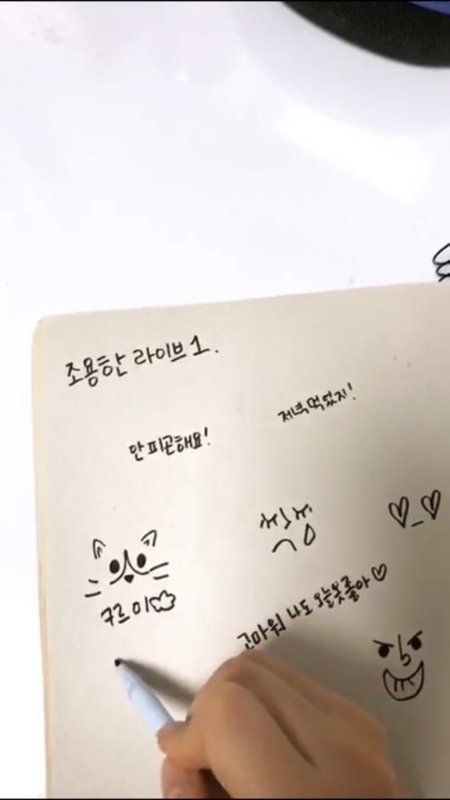 조용한 라이브 1.
저녁먹었지!
안피곤해요!
구르미
고마워 나도 오늘옷좋아♡